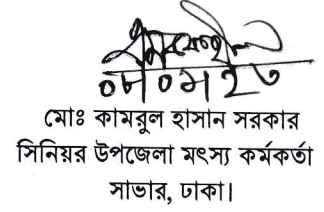 মোঃ কামরুল হাসান সরকার
সিনিয়র উপজেলা মৎস্য কর্মকর্তা
সাভার, ঢাকা।